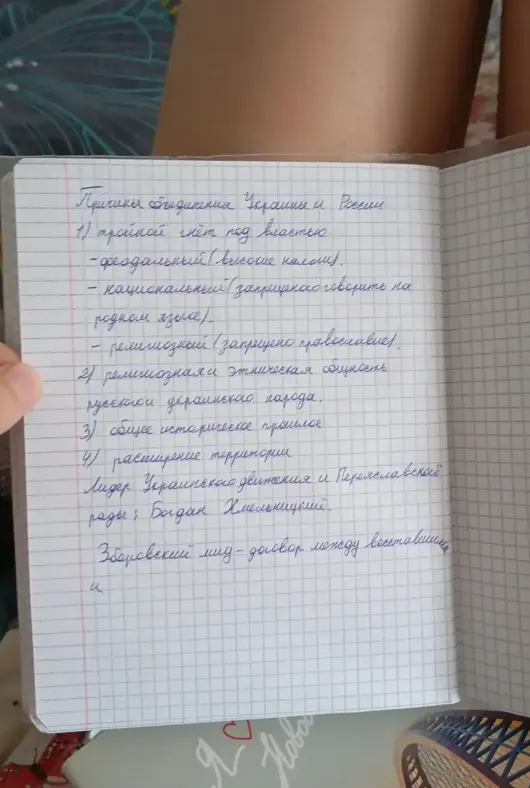 Причины объединения Украины и России
1) тройной гнёт под властью
- феодальный (высокие налоги).
- национальный (запрещенао говорить на
родном языке).
- религиозный (запрещено православие).
2) религиозная и этническая общность
русского и украинского народа.
3) общее историческое прошлое
4) расширение территории
Лидер Украинского движения и Переяславской
рады: Богдан Хмельницкий.
Зборовский мид - договор между восставшими
и
Я
Нова